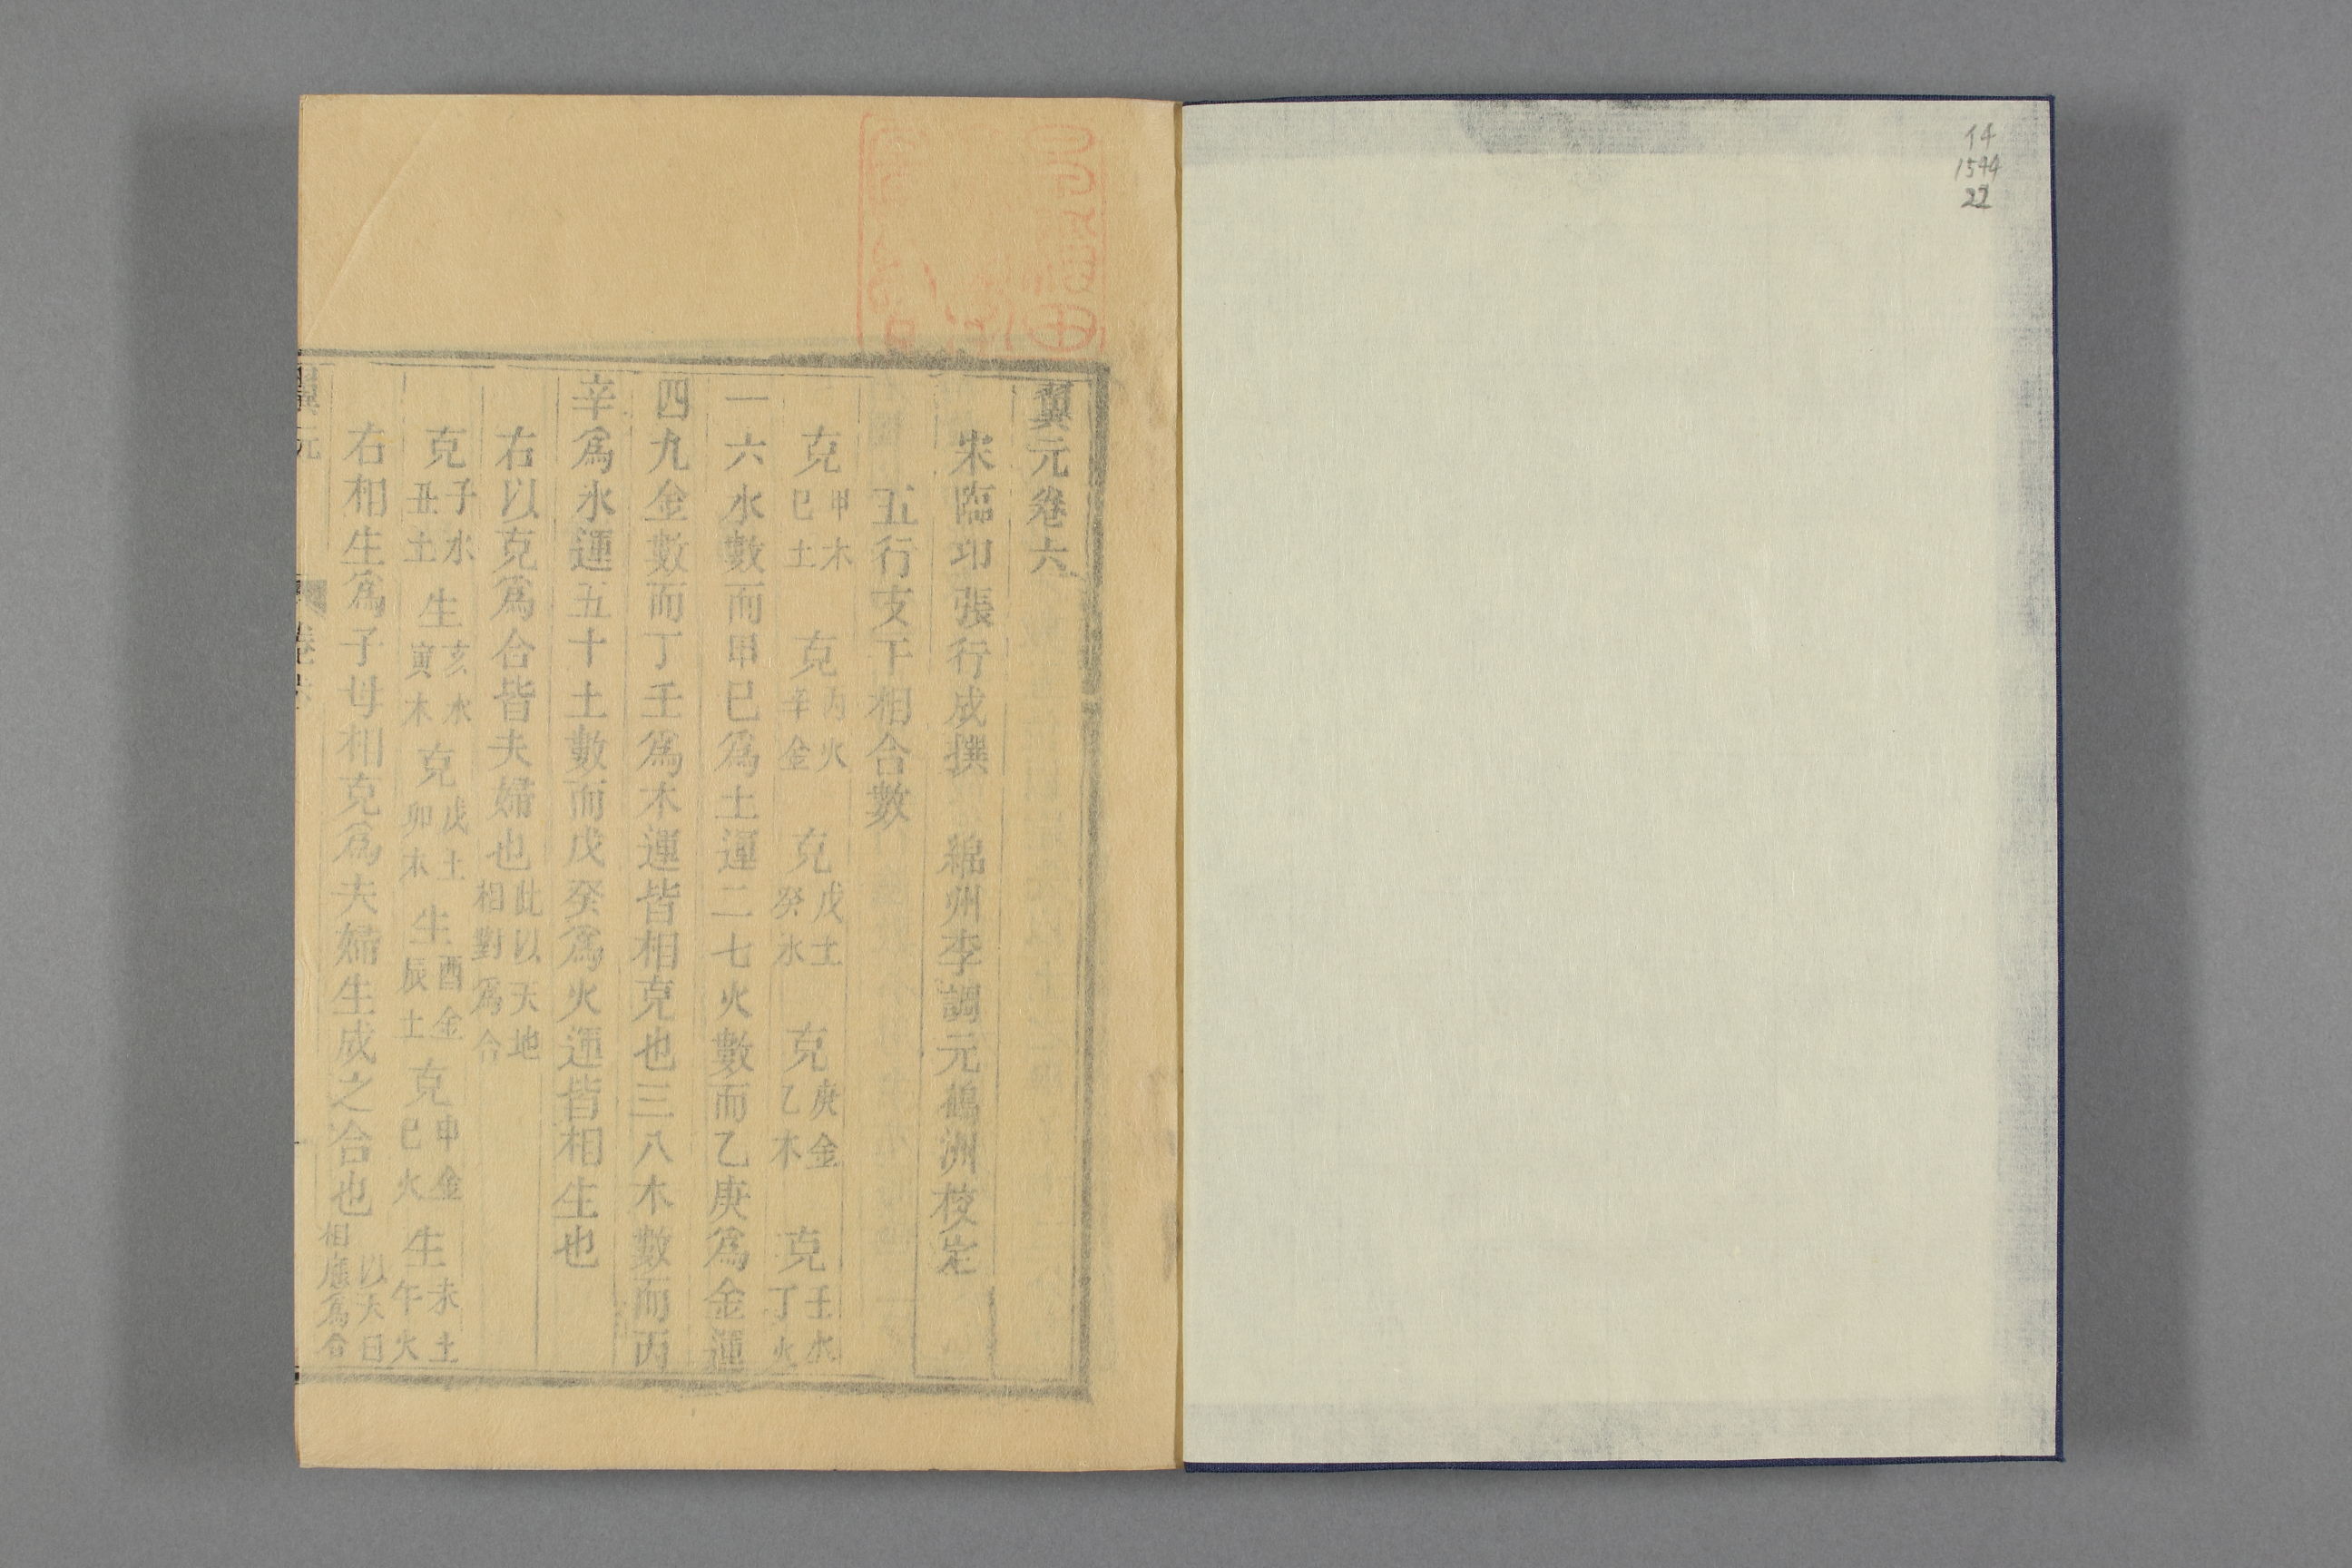 翼元卷六
宋臨卭張行成撰　綿州李調元鶴洲校定
五行支干相合數
克甲木己土　克丙火辛金　克戊土癸水　克庚金乙木　克壬水丁火
一六水數而甲己爲土運二七火數而乙庚爲金運
四九金數而丁壬爲木運皆相克也三八木數而丙
辛爲水運五十土數而戊癸爲火運皆相生也
右以克爲合皆夫婦也此以天地相對爲合
克子水丑土　生亥水寅木　克戌土卯木　生酉金辰土　克申金巳火　生未土午火
右相生爲子母相克爲夫婦生成之合也以天日相應爲合
翼元　卷六
14
1544
22